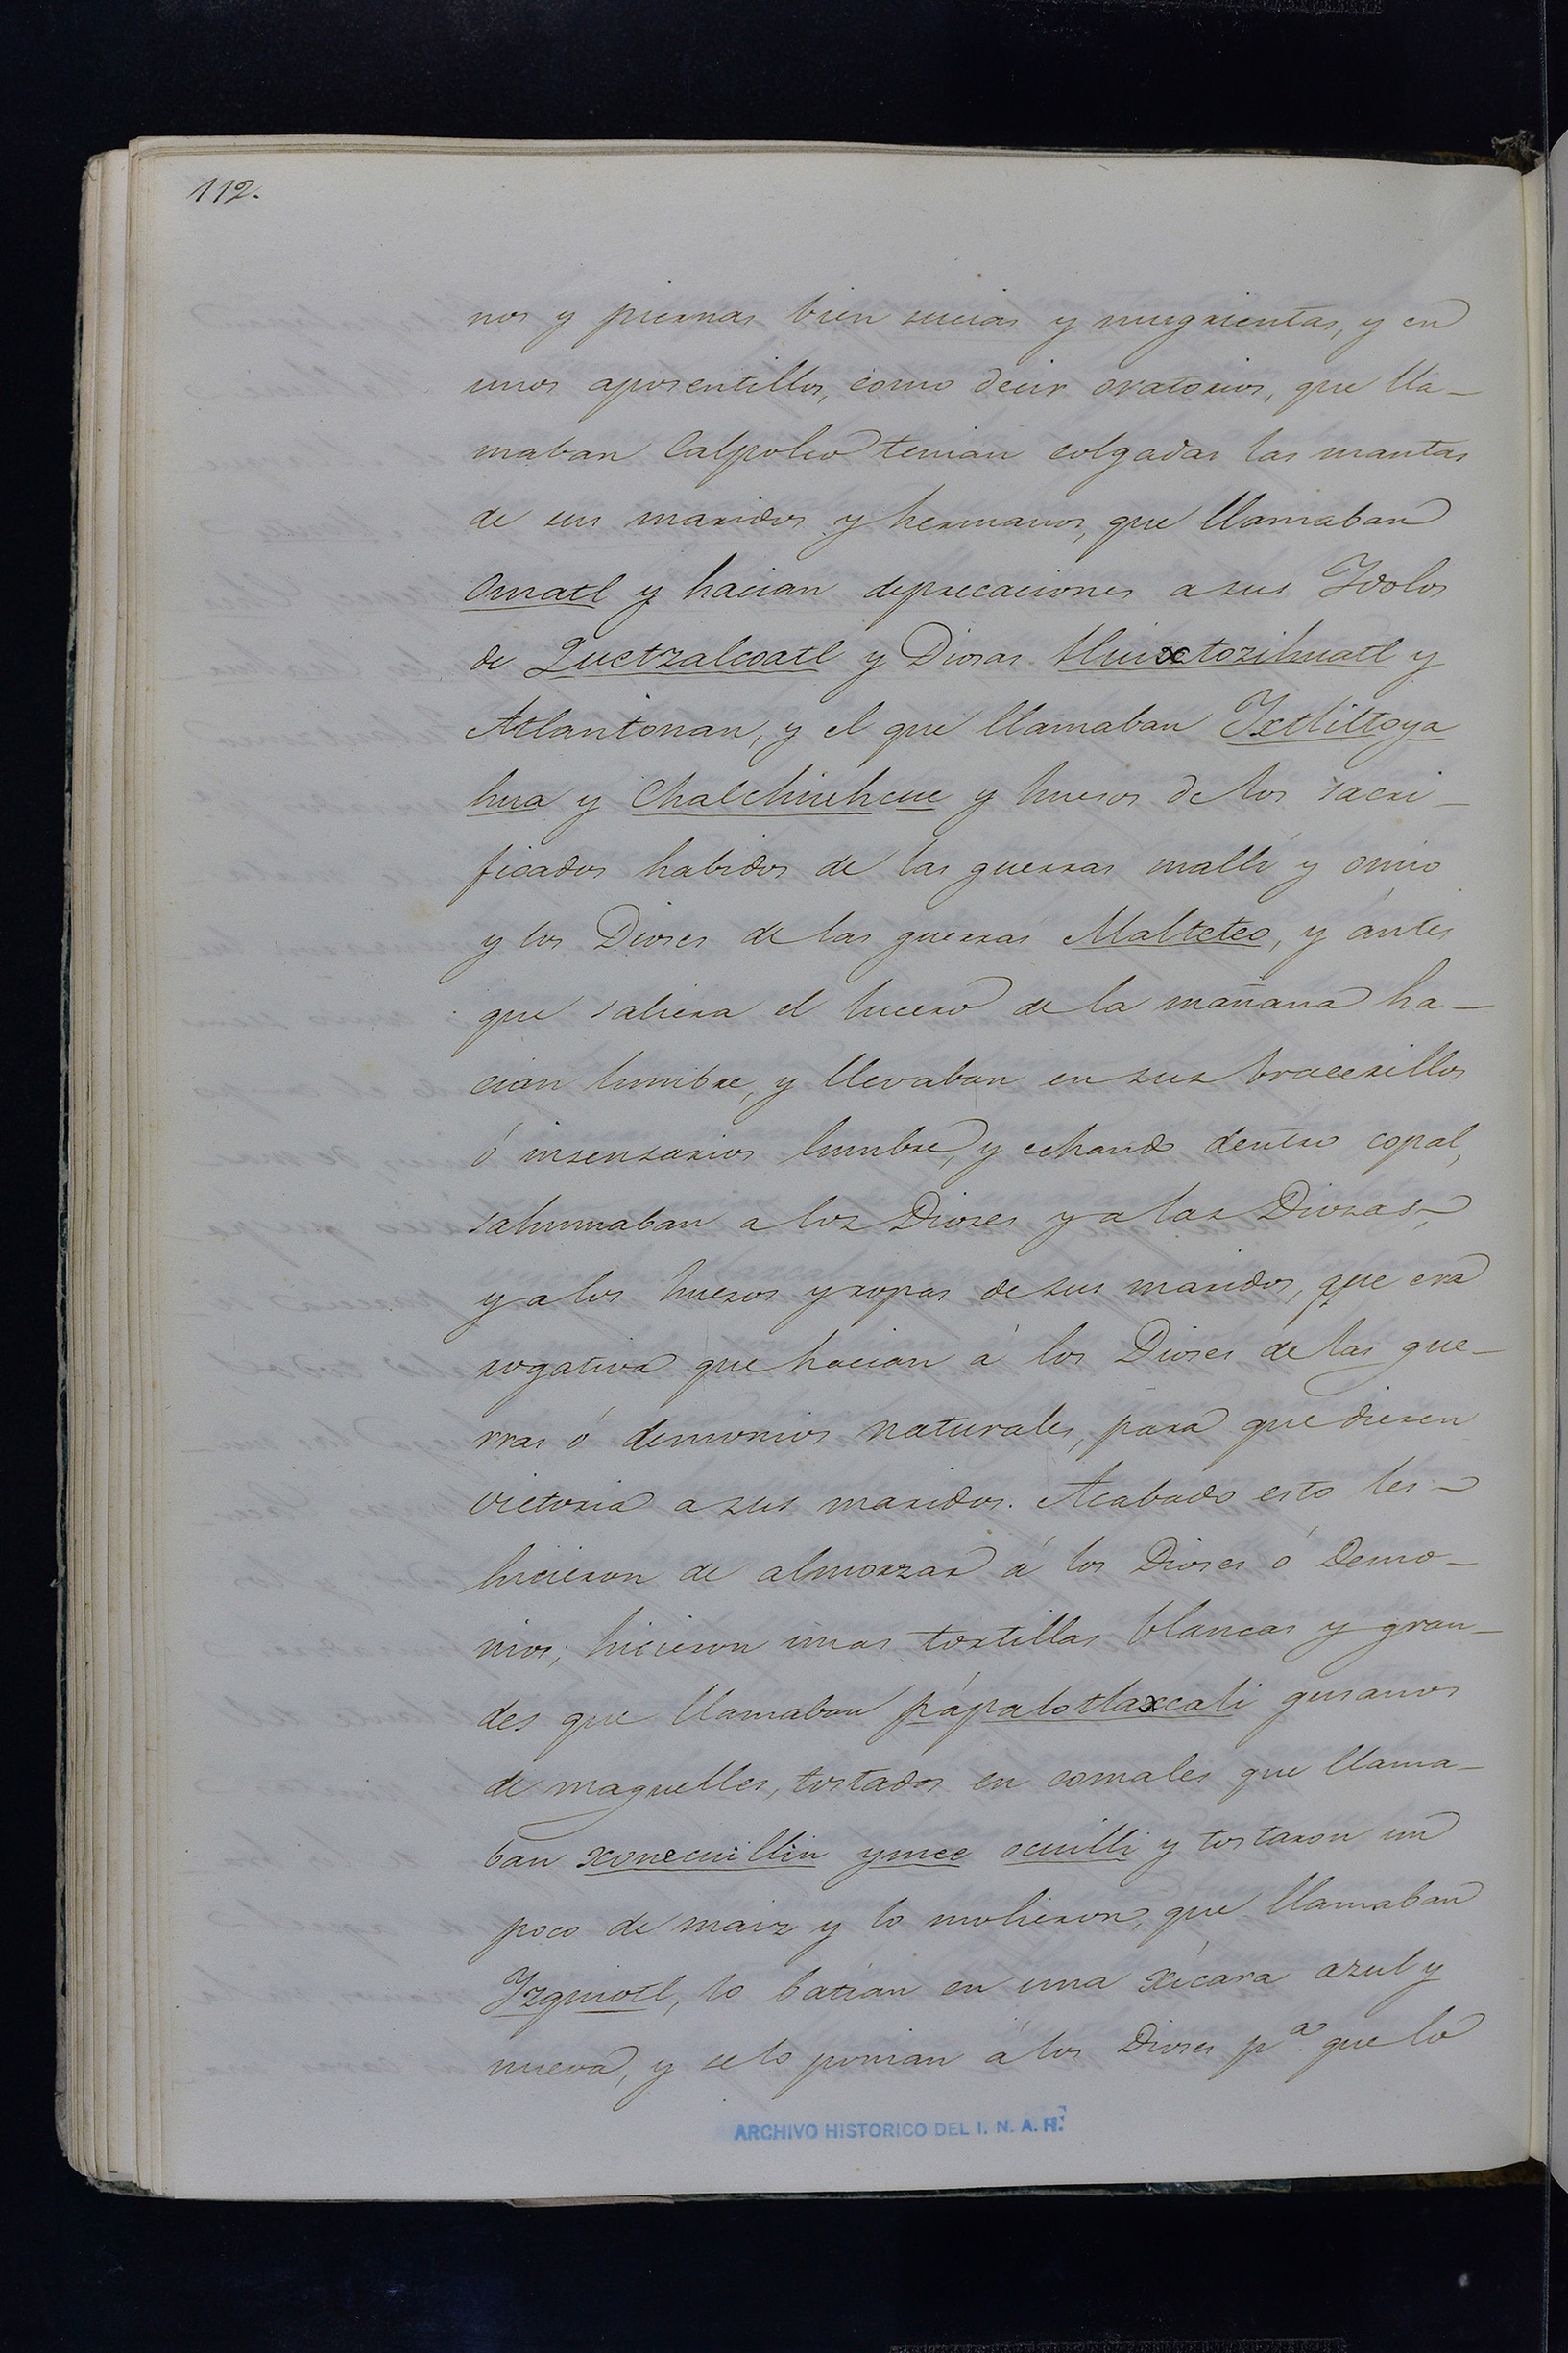 112.
nos y piernas bien sucias y mugrientas, y en
unos aposentillos, como decir oratorios, que lla-
maban Calpolco tenian colgadas las mantas
de sus maridos y hermanos, que llamaban
Omatl y hacian deprecaciones a sus Ydolos
de Quetzalcoatl y Diosas Huixtozihuatl y
Atlantonan, y el que llamaban Ixtliltoya
hua y Chalchiuhcue y huesos de los sacri-
ficados habidos de las guerras malli y omio
y los Dioses de las guerras Malteteo, y ántes
que saliera el lucero de la mañana ha-
cian lumbre, y llevaban en sus bracerillos
ó insensarios lumbre, y echando dentro copal,
sahumaban a los Dioses y a las Diosas,
y a los huesos y ropas de sus maridos, que era
rogativa que hacian á los Dioses de las gue-
rras ó demonios naturales, para que diesen
victoria a sus maridos. Acabado esto les
hicieron de almorzar á los Dioses ó Demo-
nios; hicieron unas tortillas blancas y gran-
des que llamaban pápalotlaxcali gusanos
de maguelles, tostados en comales que llama-
ban xonecuillin ymee ocuilli y tostaron un
poco de maiz y lo molieron, que llamaban
Yzquiotl, lo batian en una xícara azul y
nueva, y se lo ponian á los Dioses pa. que lo
ARCHIVO HISTORICO DEL I. N. A. H.